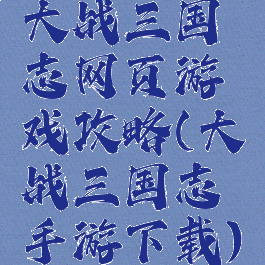 大战三国
志网页游
戏攻略(大
战三国志
手游下载)